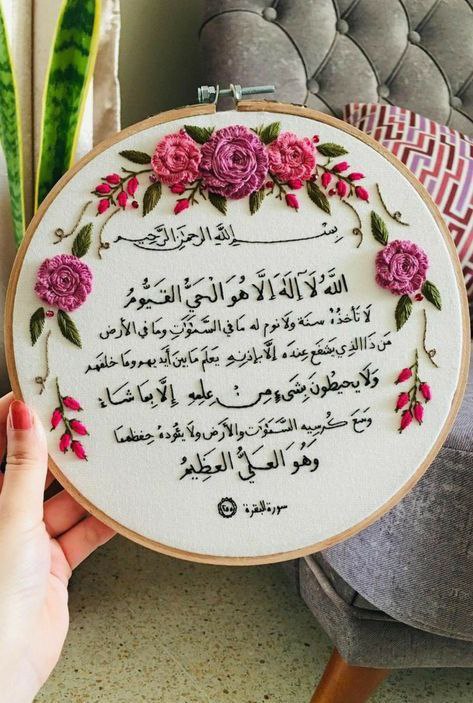 بسم الله الرحمن الرحيم
الله لا إله إلا هو الحي القيوم
لا تأخذه سنة ولا نوم له ما في السموات وما في الأرض
من ذا الذي يشفع عنده إلا بإذنه يعلم ما بين أيديهم وما خلفهم
ولا يحيطون بشيء من علمه إلا بما شاء
وسع كرسيه السموات والأرض ولا يئوده حفظهما
وهو العلي العظيم
سورة البقرة ٢٥٥